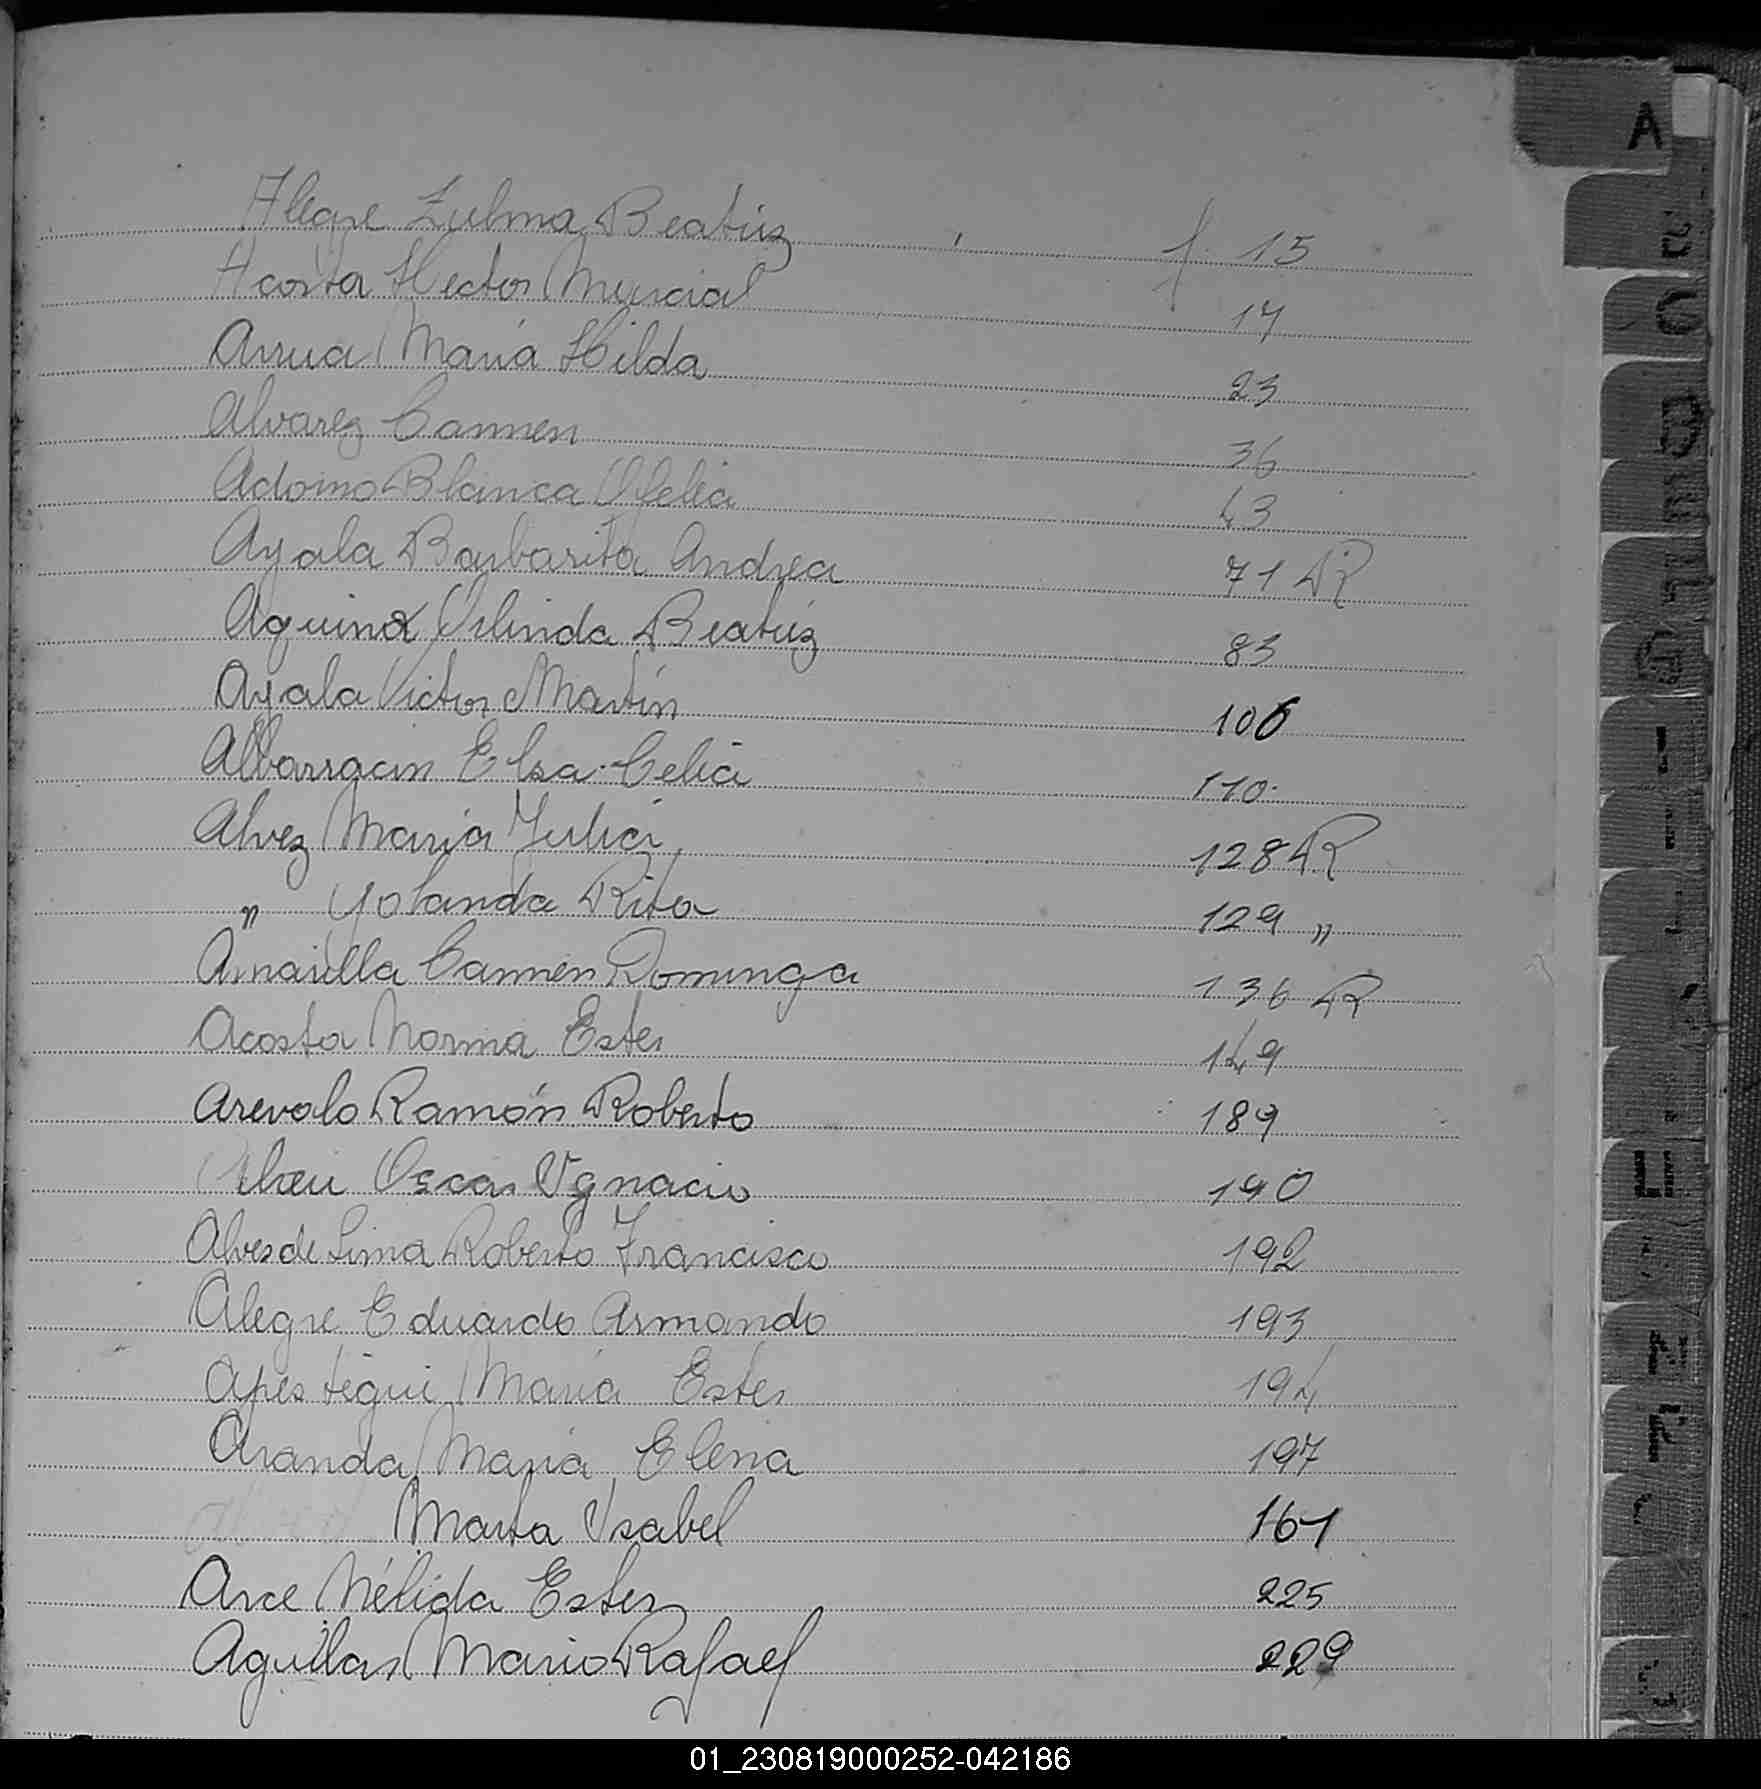 A
Alegre Zulma Beatriz f. 15
Acosta Hector Murcial 17
Arrua María Hilda 23
Alvarez Carmen 36
Adorno Blanca Ofelia 43
Ayala Barbarita Andrea 71 R
Aquino Orlinda Beatríz 83
Ayala Victor Martín 106
Albarracin Elsa Celia 110
Alvez María Julia 128 R
" Yolanda Rita 129 "
Amarilla Carmen Dominga 136 R
Acosta Norma Ester 149
Arevalo Ramón Roberto 189
Abreu Oscar Ygnacio 190
Alves de Lima Roberto Francisco 192
Alegre Eduardo Armando 193
Apestegui María Ester 194
Aranda María Elena 197
Marta Isabel 161
Arce Nélida Ester 225
Aguilar Mario Rafael 229
01_230819000252-042186